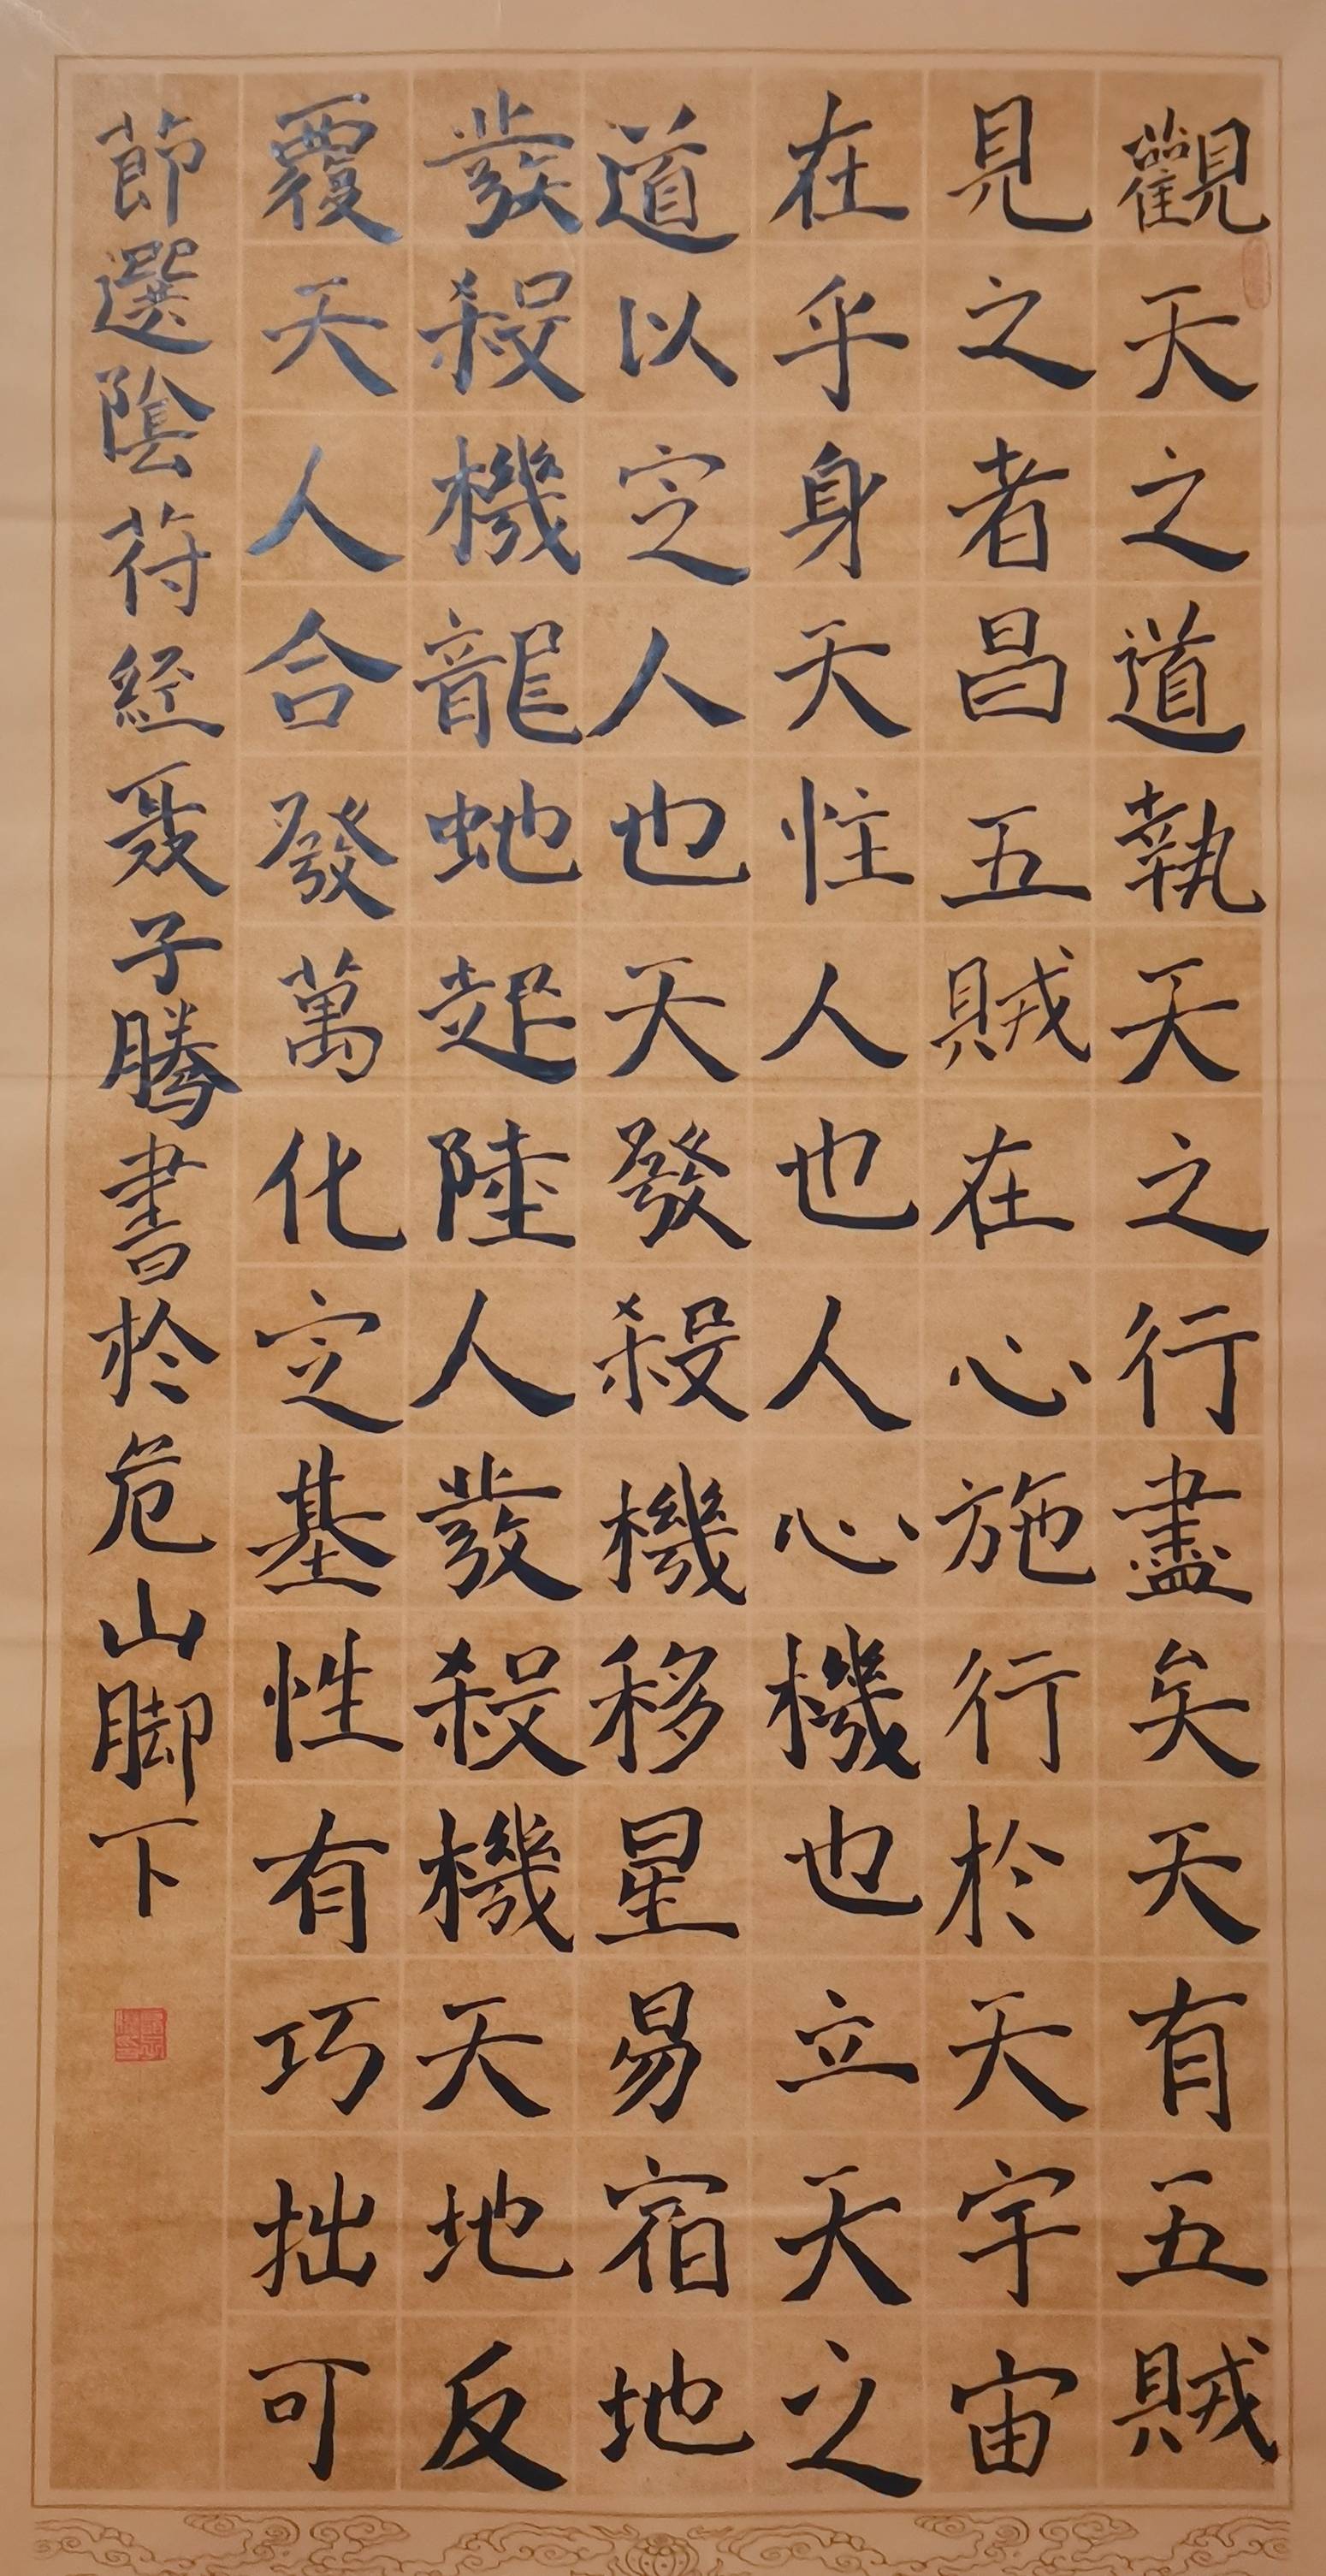 觀天之道執天之行盡矣天有五賊
見之者昌五賊在心施行於天宇宙
在乎身天性人也人心機也立天之
道以定人也天發殺機移星易宿地
發殺機龍虵起陸人發殺機天地反
覆天人合發萬化定基性有巧拙可
節選陰符經聂子騰書於危山脚下